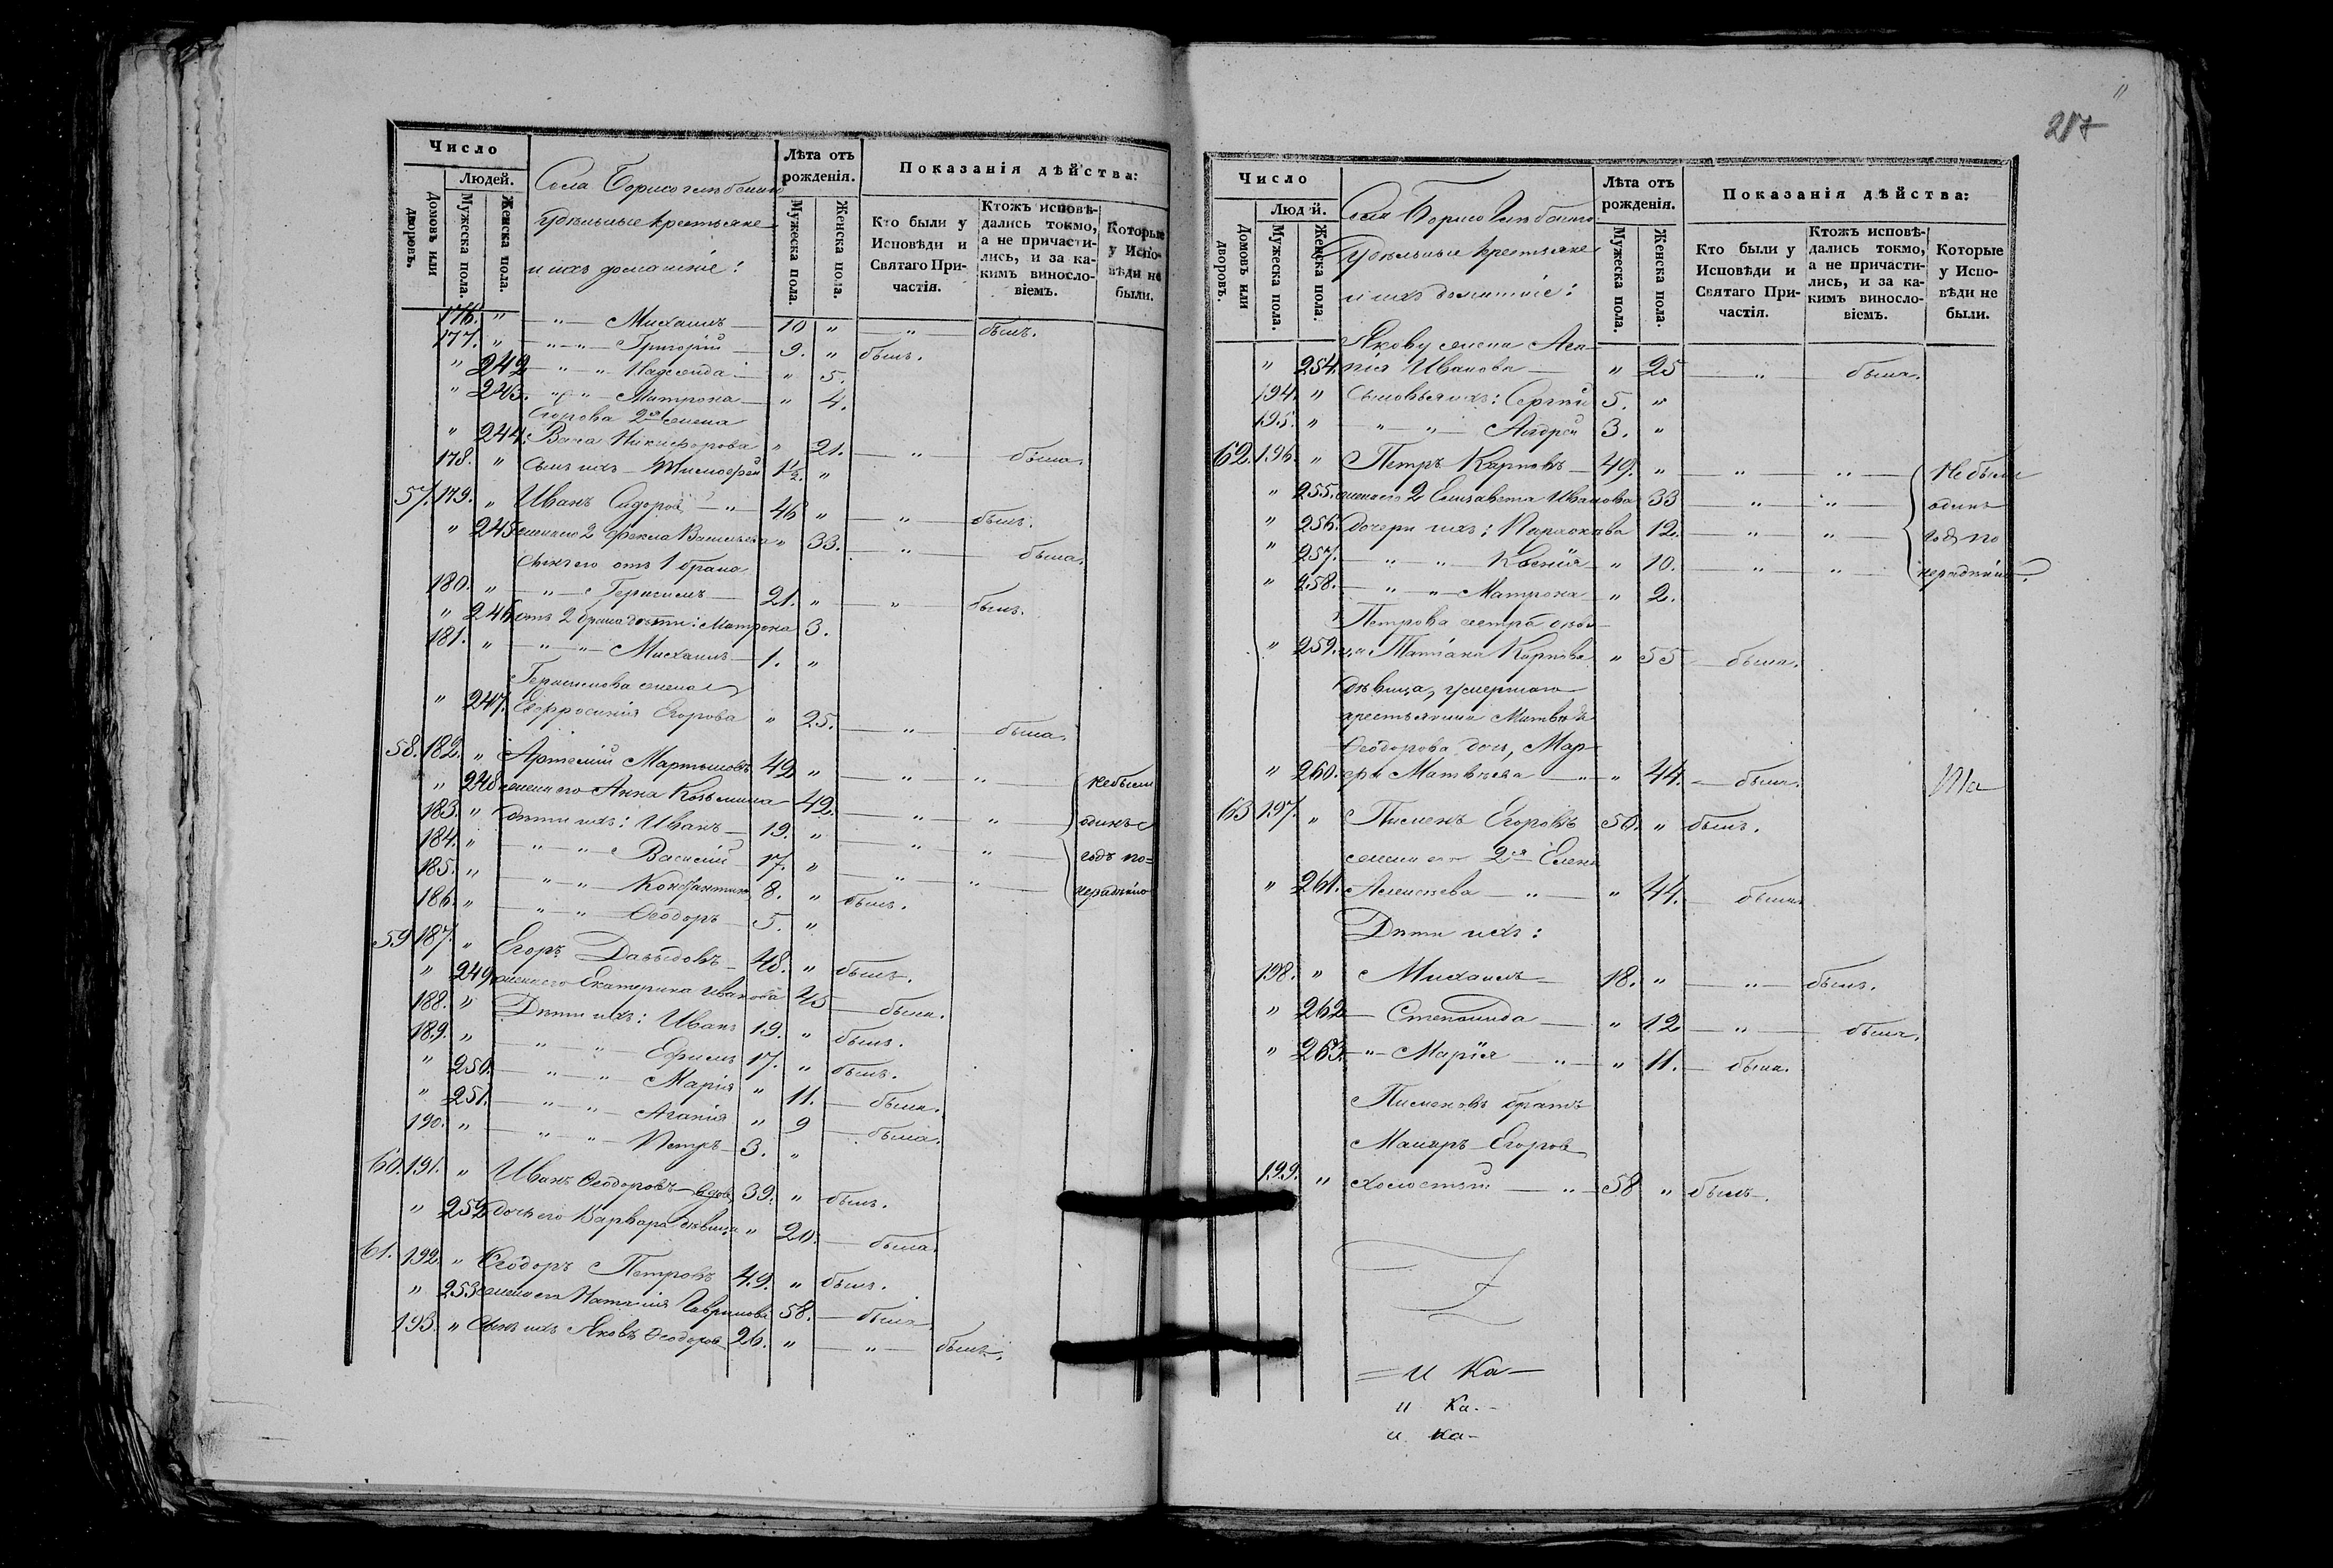 Число
Людей.
Домовъ или дворовъ.
Мужеска пола.
Женска пола.
Села Борисоглѣбскаго
Удѣльные крестьяне
и ихъ домашніе:
Лѣта отъ рожденія.
Мужеска пола.
Женска пола.
Показанія дѣйства:
Кто были у Исповѣди и Святаго Причастія.
Ктожъ исповѣдались токмо, а не причастились, и за какимъ винословіемъ.
Которые у Исповѣди не были.
176. " — " — Михаилъ — 10 " — " — былъ.
177. " — " — " — Григорій — 9. " былъ.
" 242 — " — " Надежда — " 5.
" 243. " — " — Матрона — " 4.
Егорова 2я жена
" 244 Васса Никифорова " 21. — " — была.
178. " Сынъ ихъ — Тимоѳей 1½. "
57. 179. " Иванъ Сидоровъ — " — 46 " — " — былъ.
" 245 жена его 2 Ѳекла Васильева " 33. — " — была.
Сынъ его отъ 1 брака
180. " — " — Герасимъ — 21. " — " былъ.
" 246. отъ 2 брака дѣти: Матрона 3.
181. " — " — " — Михаилъ — 1. "
Герасимова жена
" 247. Евфросинія Егорова " 25. — " — была.
58. 182. " Артемій Мартыновъ 42 " — " — " — небыли
" 248 жена его Анна Козьмина — 42. — " — " — одинъ
183. " Дѣти ихъ: Иванъ — 19. " — " — " — годъ по=
184. " — " — " Василій — 17. " — " — " — нерадѣнію
185. " — " — " — Константинъ 8. " былъ.
186. " — " — " — Ѳеодоръ — 5. "
59 187. " Егоръ Давыдовъ — 48. " былъ.
" 249. жена его Екатерина Иванова 45 — была.
188. " Дѣти ихъ: Иванъ 19. " былъ.
189. " — " — " — Ефимъ 17. " былъ.
" 250. — " — " Марія " 11. — была.
" 251. — " — " — Агапія " 9 — была.
190. " — " — " — Петръ — 3. "
60. 191. " Иванъ Ѳеодоровъ — вдов. 39. " былъ.
" 252 дочь его Варвара дѣвица " 20. — была.
61. 192. " Ѳеодоръ Петровъ 49. " былъ.
" 253 жена его Наталія Гаврилова 58. — была
193. " Сынъ ихъ Яковъ Ѳеодоров. 26. " — " — былъ.
217
Число
Людей.
Домовъ или дворовъ.
Мужеска пола.
Женска пола.
Села Борисоглѣбскаго
Удѣльные крестьяне
и ихъ домашніе:
Лѣта отъ рожденія.
Мужеска пола.
Женска пола.
Показанія дѣйства:
Кто были у Исповѣди и Святаго Причастія.
Ктожъ исповѣдались токмо, а не причастились, и за какимъ винословіемъ.
Которые у Исповѣди не были.
Якову жена
" 254. Иванова — " 25 — " — была.
194. " Сыновья ихъ: Сергій 5. "
195. " — " — " — Андрей 3. "
62. 196. " Петръ Карповъ — 49. " — " — " — Не были
" 255. жена его 2 Елисавета Иванова 33 — " — " — одинъ
" 256. Дочери ихъ: Параскева 12. — " — " — годъ по
" 257. — " — " — Ксенія — " 10. — " — " — нерадѣнію.
" 258. — " — " — Матрона — " 2.
Петрова сестра дѣви-
" 259. ца Татіана Карпова " 55 — была.
дѣвица, умершаго
крестьянина Матвѣя
Ѳеодорова дочь, Мар-
" 260. Матвѣева — " — " 44. — была.
63 197. " Пименъ Егоровъ 50. " былъ.
жена его 2я Елена
" 261. Алексѣева — " — " 44. — была
Дѣти ихъ:
198. " Михаилъ — 18. " — " — былъ.
" 262 — Степанида — " 12 — " — была.
" 263. — " — Марія — " — " 11. — была.
Пименовъ братъ
Макаръ Егоров
199. " холостый — " — 58 " былъ.
= и Ка —
и Ка. -
и Ка -